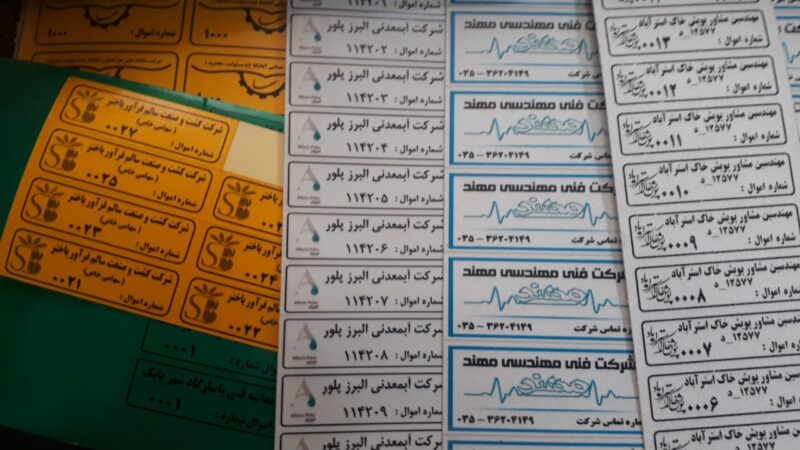 ۱۰۰۰
۱۰۰۰
شرکت کشت و صنعت سالم فرآور باختر
(سهامی خاص)
شماره اموال :
۰۰۲۷
شرکت کشت و صنعت سالم فرآور باختر
(سهامی خاص)
شماره اموال :
۰۰۲۵
شرکت کشت و صنعت سالم فرآور باختر
(سهامی خاص)
شماره اموال :
۰۰۲۳
شرکت کشت و صنعت سالم فرآور باختر
(سهامی خاص)
شماره اموال :
۰۰۲۱
۰۰۲۴
۰۰۲۲
۰۰۰۱
اموال شماره :
معاینه فنی پاسارگاد شهر بابک
اموال شماره :
۰۰۰۱
شماره اموال :
شرکت آبمعدنی البرز پلور
شماره اموال : ۱۱۴۲۰۲
شرکت آبمعدنی البرز پلور
شماره اموال : ۱۱۴۲۰۳
شرکت آبمعدنی البرز پلور
شماره اموال : ۱۱۴۲۰۴
شرکت آبمعدنی البرز پلور
شماره اموال : ۱۱۴۲۰۵
شرکت آبمعدنی البرز پلور
شماره اموال : ۱۱۴۲۰۶
شرکت آبمعدنی البرز پلور
شماره اموال : ۱۱۴۲۰۷
شرکت آبمعدنی البرز پلور
شماره اموال : ۱۱۴۲۰۸
شرکت آبمعدنی البرز پلور
شماره اموال : ۱۱۴۲۰۹
شرکت فنی مهندسی مهند
شماره تماس شرکت ۳۶۲۰۴۱۴۹ – ۰۳۵
شرکت فنی مهندسی مهند
شماره تماس شرکت ۳۶۲۰۴۱۴۹ – ۰۳۵
شرکت فنی مهندسی مهند
شماره تماس شرکت ۳۶۲۰۴۱۴۹ – ۰۳۵
شرکت فنی مهندسی مهند
شماره تماس شرکت ۳۶۲۰۴۱۴۹ – ۰۳۵
شرکت فنی مهندسی مهند
شماره تماس شرکت ۳۶۲۰۴۱۴۹ – ۰۳۵
مهندسین مشاور پویش خاک استرآباد
د_۱۲۵۷۷
شماره اموال : ۰۰۱۳
مهندسین مشاور پویش خاک استرآباد
د_۱۲۵۷۷
شماره اموال : ۰۰۱۲
مهندسین مشاور پویش خاک استرآباد
د_۱۲۵۷۷
شماره اموال : ۰۰۱۱
مهندسین مشاور پویش خاک استرآباد
د_۱۲۵۷۷
شماره اموال : ۰۰۱۰
مهندسین مشاور پویش خاک استرآباد
د_۱۲۵۷۷
شماره اموال : ۰۰۰۹
مهندسین مشاور پویش خاک استرآباد
د_۱۲۵۷۷
شماره اموال : ۰۰۰۸
مهندسین مشاور پویش خاک استرآباد
د_۱۲۵۷۷
شماره اموال : ۰۰۰۷
مشاور پویش خاک استرآباد
د_۱۲۵۷۷
اموال : ۰۰۰۶
مشاور پویش خاک استرآباد